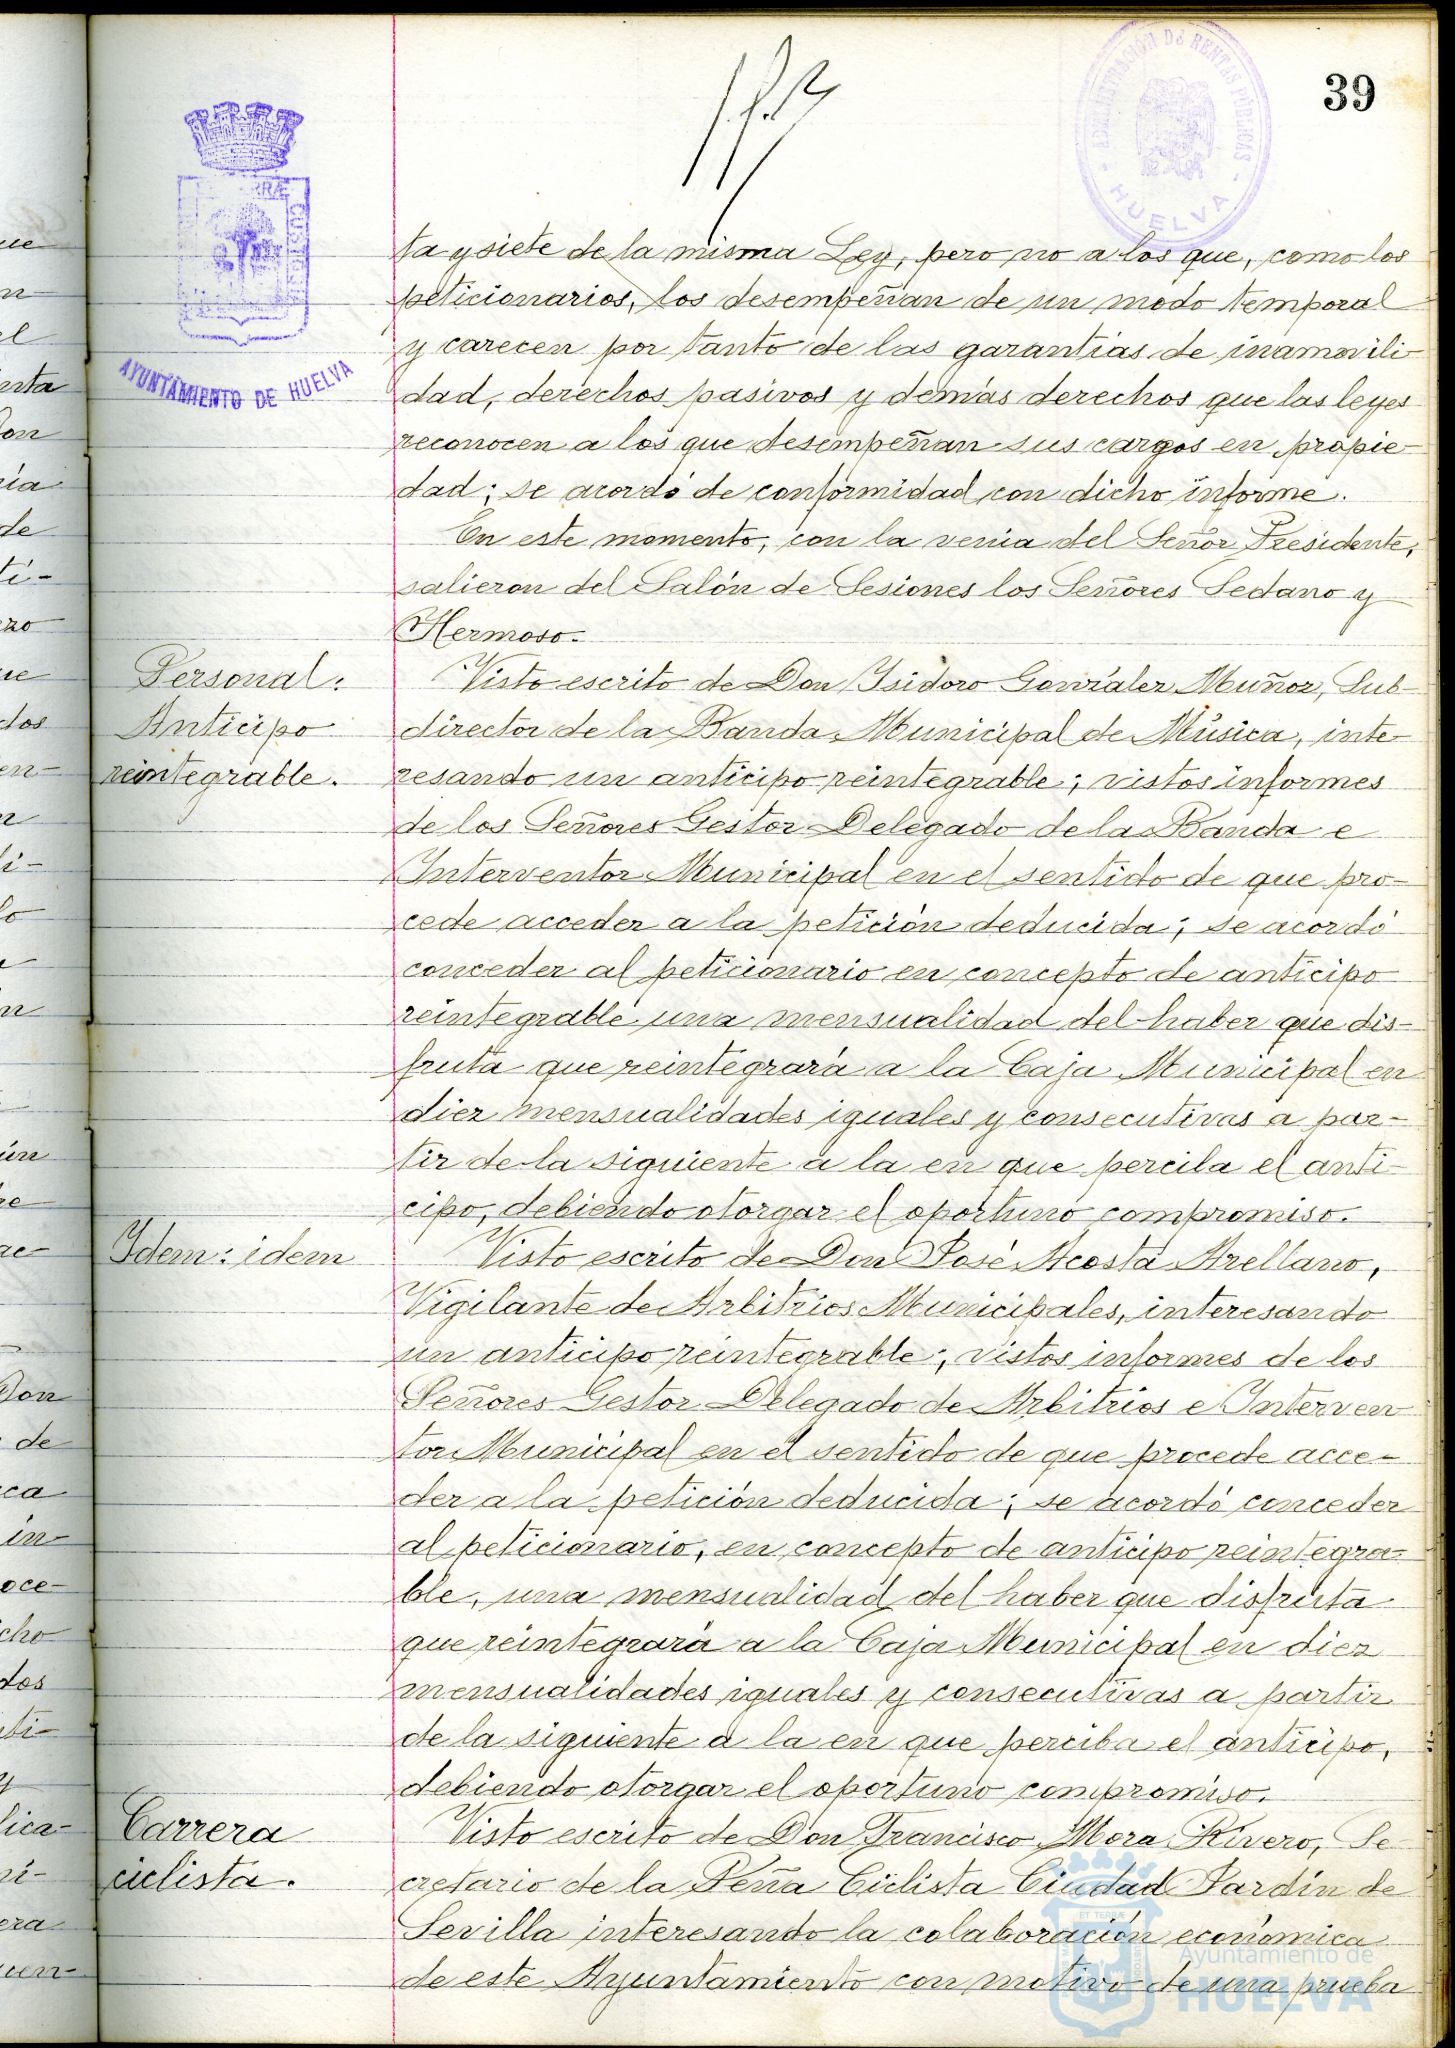 39
ADMINISTRACIÓN DE RENTAS PÚBLICAS
HUELVA
AYUNTAMIENTO DE HUELVA
ta y siete de la misma Ley, pero no a los que, como los
peticionarios, los desempeñan de un modo temporal
y carecen por tanto de las garantías de inamovili-
dad, derechos pasivos y demás derechos que las leyes
reconocen a los que desempeñan sus cargos en propie-
dad; se acordó de conformidad con dicho informe.
En este momento, con la venia del Señor Presidente,
salieron del Salón de Sesiones los Señores Sedano y
Hermoso.
Personal:
Anticipo
reintegrable.
Visto escrito de Don Isidoro González Muñoz, Sub-
director de la Banda Municipal de Música, inte-
resando un anticipo reintegrable; vistos informes
de los Señores Gestor Delegado de la Banda e
Interventor Municipal en el sentido de que pro-
cede acceder a la petición deducida; se acordó
conceder al peticionario en concepto de anticipo
reintegrable una mensualidad del haber que dis-
fruta que reintegrará a la Caja Municipal en
diez mensualidades iguales y consecutivas a par-
tir de la siguiente a la en que perciba el anti-
cipo, debiendo otorgar el oportuno compromiso.
Idem: idem
Visto escrito de Don José Acosta Arellano,
Vigilante de Arbitrios Municipales, interesando
un anticipo reintegrable; vistos informes de los
Señores Gestor Delegado de Arbitrios e Interven
tor Municipal en el sentido de que procede acce-
der a la petición deducida; se acordó conceder
al peticionario, en concepto de anticipo reintegra-
ble, una mensualidad del haber que disfruta
que reintegrará a la Caja Municipal en diez
mensualidades iguales y consecutivas a partir
de la siguiente a la en que perciba el anticipo,
debiendo otorgar el oportuno compromiso.
Carrera
ciclista.
Visto escrito de Don Francisco Mora Rivero, Se
cretario de la Peña Ciclista Ciudad Jardín de
Sevilla interesando la colaboración económica
de este Ayuntamiento con motivo de una prueba
Ayuntamiento de
HUELVA